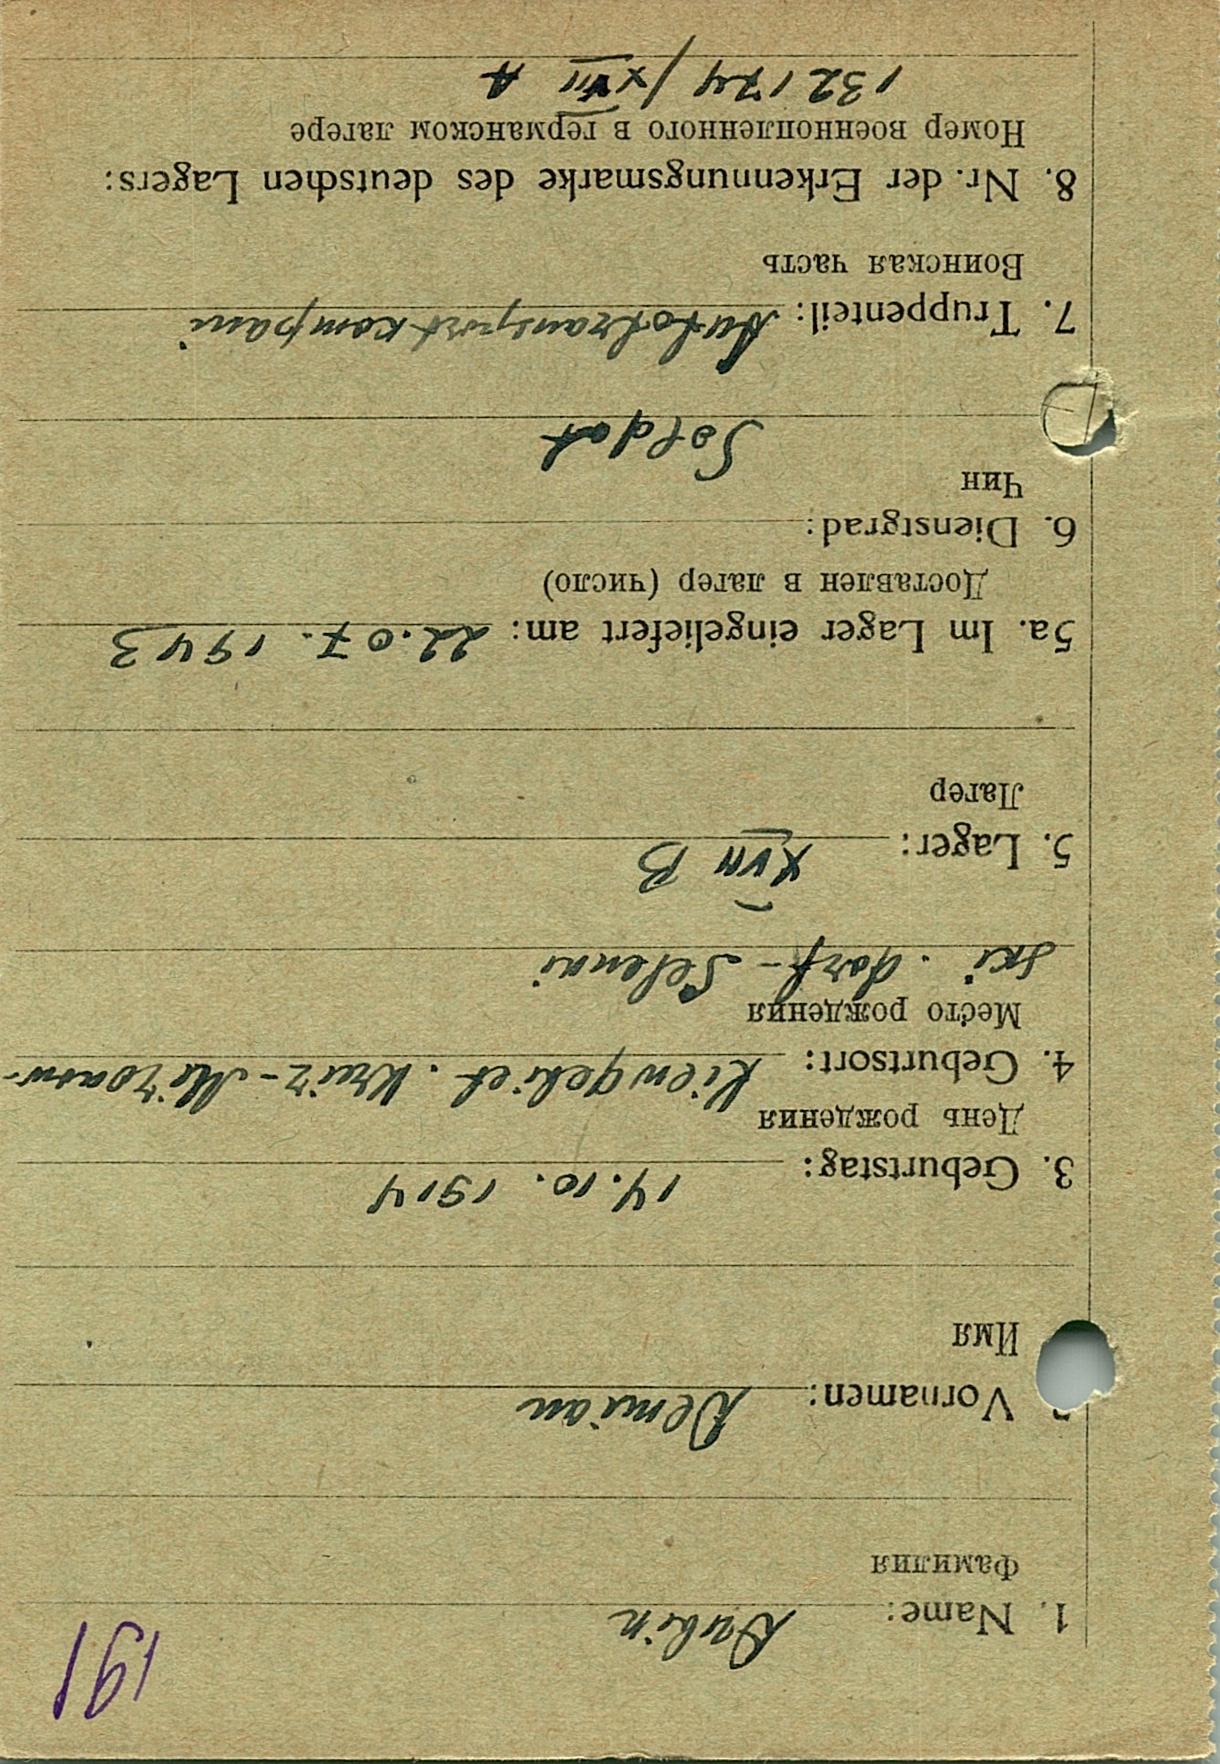 191
1. Name: Dubin
Фамилия
Vornamen: Demian
Имя
3. Geburtstag: 14.10.1914
День рождения
4. Geburtsort: Kiewgebiet. Kreiz-Mironow-
Место рождения
ski. dorf-Selenni
5. Lager: XVII B
Лагер
5a. Im Lager eingeliefert am: 22.07.1943
Доставлен в лагер (число)
6. Dienstgrad:
Чин
Soldat
7. Truppenteil: Autotransportkompani
Воинская часть
8. Nr. der Erkennungsmarke des deutschen Lagers:
Номер военнопленного в германском лагере
132174/XVII A